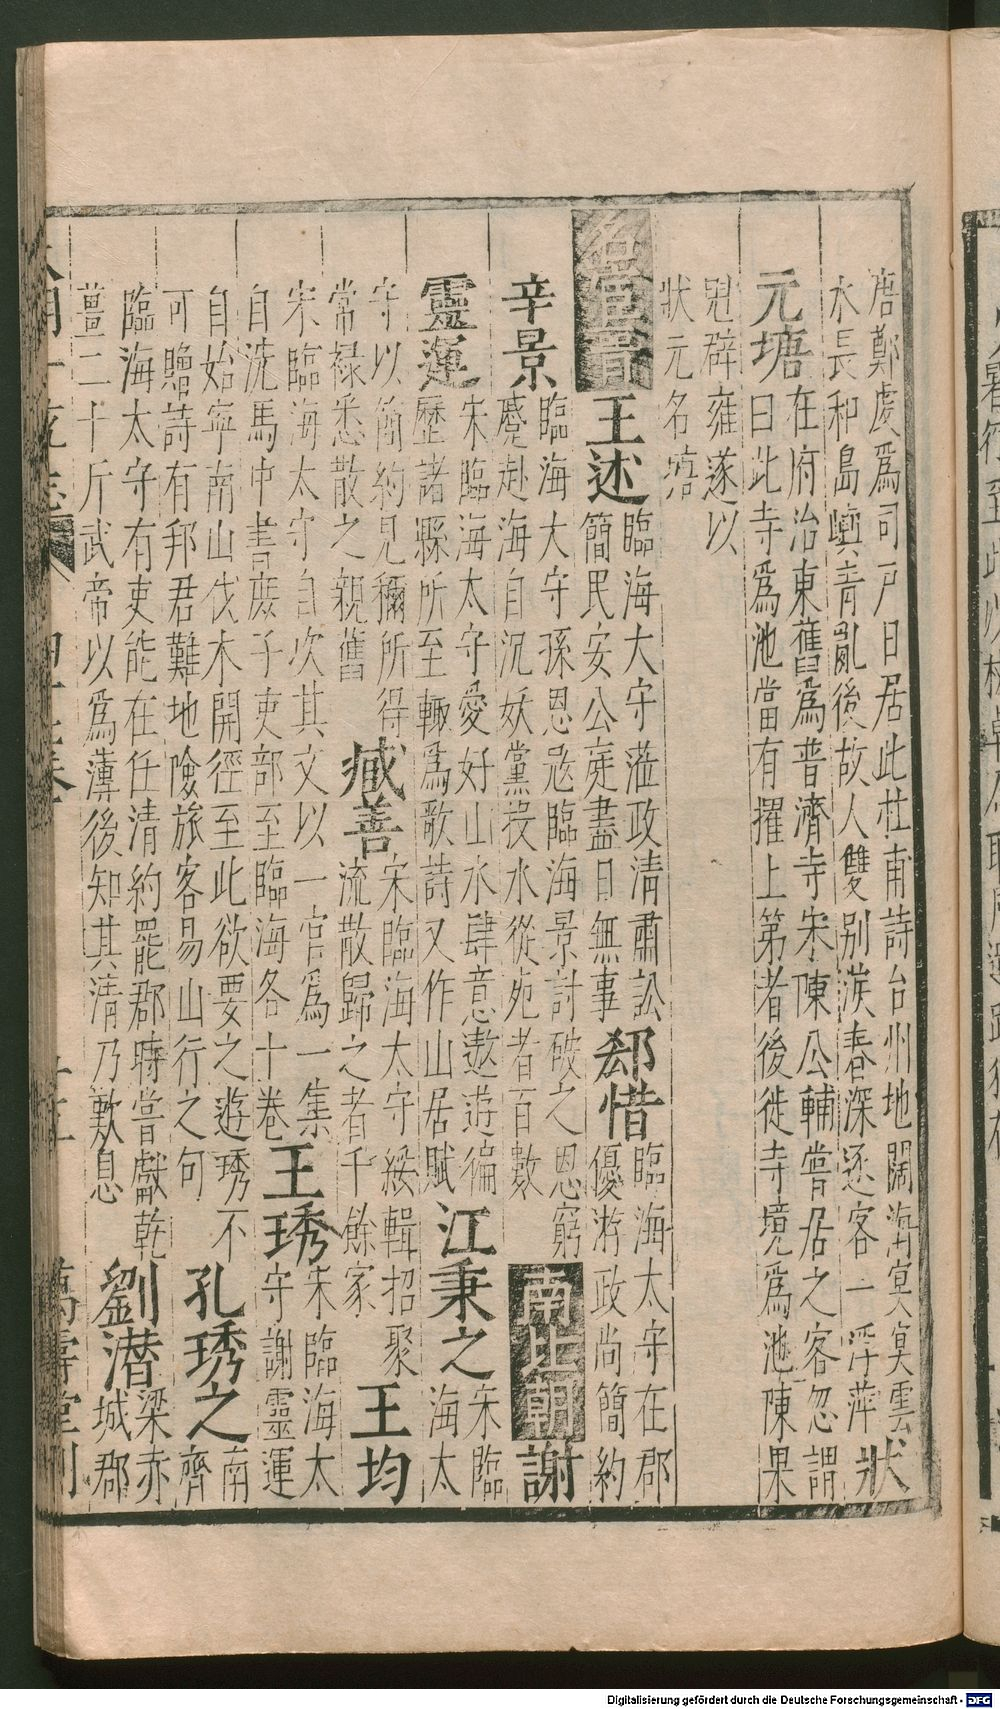 唐鄭虔爲司戸日居此杜甫詩台州地闊海㝠㝠雲
水長和島嶼青亂後故人雙别淚春深逐客一浮萍
狀
元塘
在府治東舊爲普濟寺宋陳公輔嘗居之客忽謂
曰此寺爲池當有擢上第者後徙寺境爲池陳果
冠辟雍遂以
狀元名塘
名宦晉
王述
臨海大守蒞政清肅訟
簡民安公庭盡日無事
郄惜
臨海太守在郡
優游政尚簡約
辛景
臨海大守孫恩宼臨海景討破之恩窮
蹙赴海自沉妖黨投水從死者百數
南北朝
謝
靈運
宋臨海太守愛好山水肆意遨遊徧
歷諸縣所至輙爲歌詩又作山居賦
江秉之
宋臨
海太
守以簡約見稱所得
常禄悉散之親舊
臧善
宋臨海太守綏輯招聚
流散歸之者千餘家
王均
宋臨海太守自次其文以一官爲一集
自洗馬中書庶子吏部至臨海各十卷
王琇
宋臨海太
守謝靈運
自始寧南山伐木開徑至此欲要之遊琇不
可贈詩有邦君難地險旅客易山行之句
孔琇之
南
齊
臨海太守有吏能在任清約罷郡時嘗獻乾
薑二十斤武帝以爲薄後知其清乃歎息
劉潜
梁赤
城郡
大明一統志
萬壽堂刊
Digitalisierung gefördert durch die Deutsche Forschungsgemeinschaft - DFG